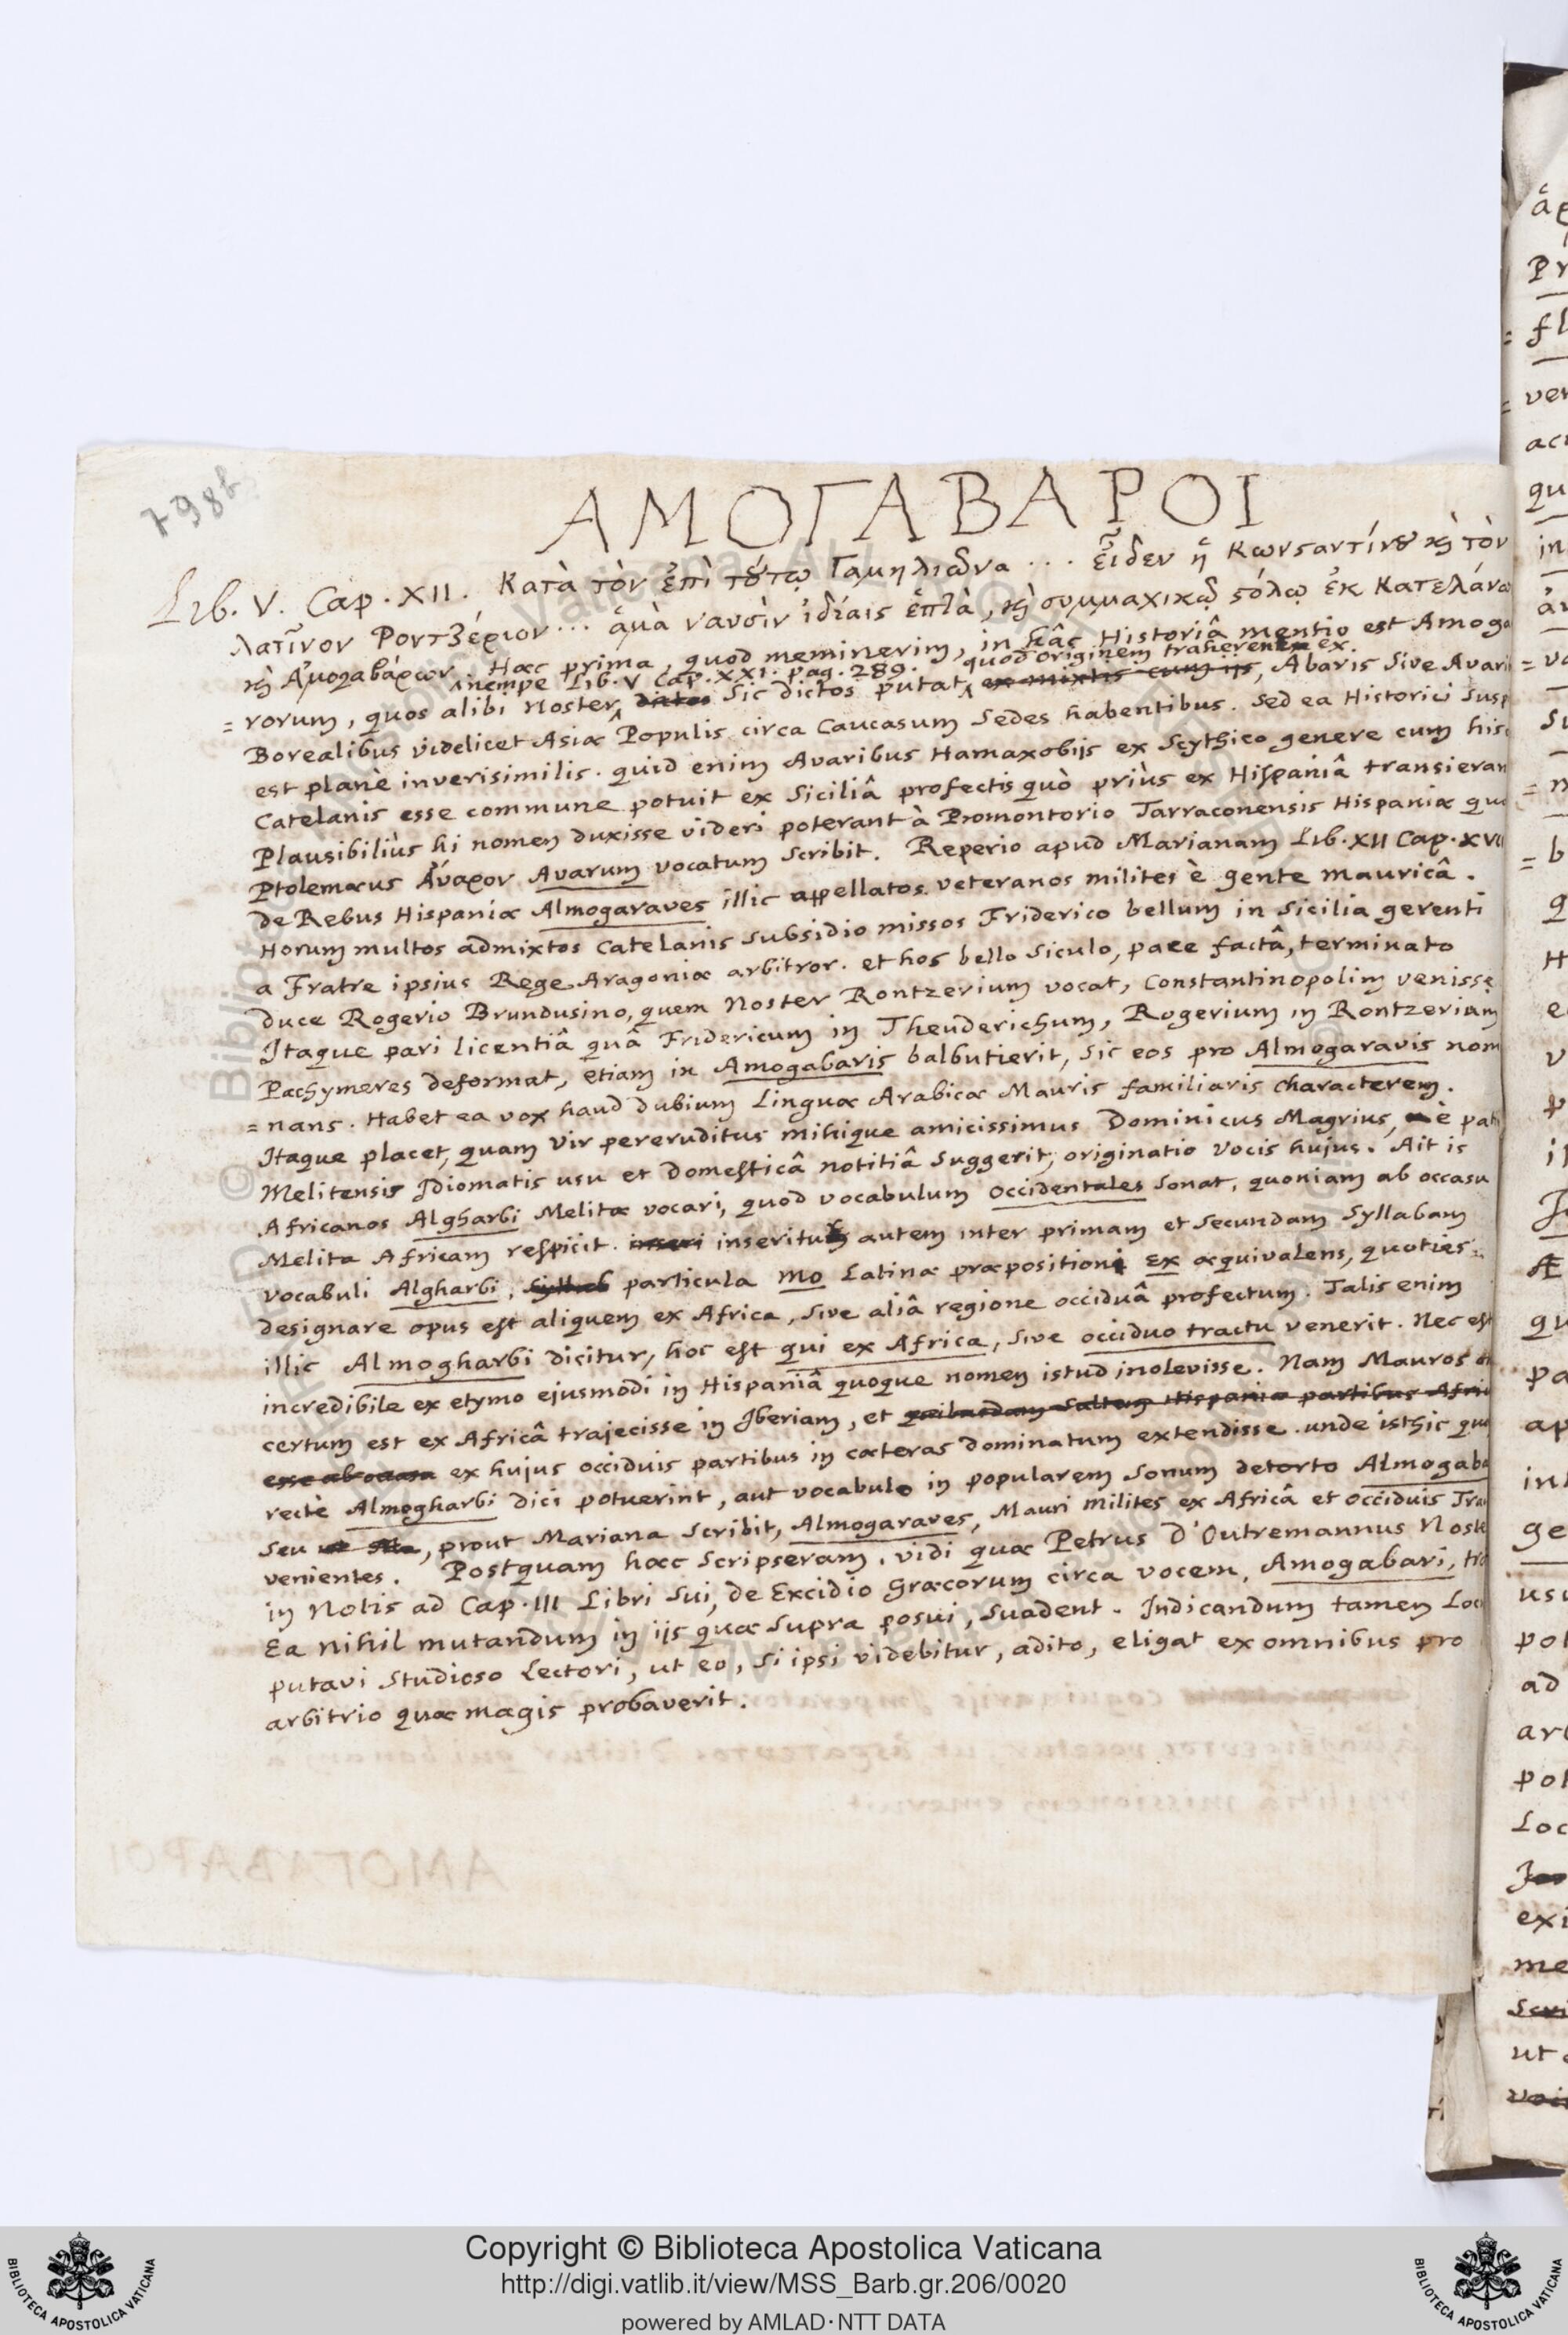 798b
ΑΜΟΓΑΒΑΡΟΙ
Lib. V. Cap. XII. Κατὰ τὸν ἐπὶ τούτῳ Γαμηλιῶνα ... εἶδεν ἡ Κωνσαντίνου καὶ τὸν
λατῖνον Ροντζέριον ... ἅμα ναυσὶν ἰδίαις ἑπτὰ, καὶ συμμαχικῷ στόλῳ ἐκ Κατελάνω
καὶ Ἀμογαβάρων. Hæc prima, quod meminerim, in hâc Historiâ mentio est Amoga
nempe Lib. V Cap. XXI. pag. 289. quod originem traherent ex.
= rorum, quos alibi Noster, dictos sic dictos putat, ex mixtis cum ijs, Abaris sive Avari
Borealibus videlicet Asiæ Populis circa Caucasum sedes habentibus. sed ea Historici susp
est planè inverisimilis. quid enim Avaribus Hamaxobijs ex Scythico genere cum hisc
Catelanis esse commune potuit ex Siciliâ profectis quò priùs ex Hispaniâ transieran
Plausibiliùs hi nomen duxisse videri poterant à Promontorio Tarraconensis Hispaniæ qu
Ptolemæus Ἄυαρον Avarum vocatum scribit. Reperio apud Marianam Lib. XII Cap. XVI
de Rebus Hispaniæ Almogaraves illic appellatos veteranos milites è gente mauricâ.
Horum multos admixtos Catelanis subsidio missos Friderico bellum in Sicilia gerenti
a Fratre ipsius Rege Aragoniæ arbitror. et hos bello siculo, pace factâ, terminato
duce Rogerio Brundusino, quem Noster Rontzerium vocat, Constantinopolim venisse
Itaque pari licentiâ quâ Fridericum in Theuderichum, Rogerium in Rontzerium
Pachymeres deformat, etiam in Amogabaris balbutierit, sic eos pro Almogaravis nom
= nans. Habet ea vox haud dubium Linguæ Arabicæ Mauris familiaris characterem.
Itaque placet, quam vir pereruditus mihique amicissimus Dominicus Magrius, è pat
Melitensis Idiomatis usu et domesticâ notitiâ suggerit, originatio vocis hujus. Ait is
Africanos Algharbi Melitæ vocari, quod vocabulum occidentales sonat, quoniam ab occasu
Melita Africam respicit. inseri inseritur autem inter primam et secundam syllabam
vocabuli Algharbi, syllab particula mo Latinæ præpositioni ex æquivalens, quoties
designare opus est aliquem ex Africa, sive aliâ regione occiduâ profectum. Talis enim
illic Almogharbi dicitur, hoc est qui ex Africa, sive occiduo tractu venerit. Nec est
incredibile ex etymo ejusmodi in Hispaniâ quoque nomen istud inolevisse. Nam Mauros
certum est ex Africâ trajecisse in Iberiam, et quibusdam saltem Hispaniæ partibus Afri
esse ab occasu ex hujus occiduis partibus in cæteras dominatum extendisse. unde isthic qu
rectè Almogharbi dici potuerint, aut vocabulo in popularem sonum detorto Almogaba
seu , prout Mariana scribit, Almogaraves, Mauri milites ex Africâ et occiduis Tra
venientes. Postquam hæc scripseram, vidi quæ Petrus D'Outremannus Noste
in Notis ad Cap. III Libri sui, de Excidio Græcorum circa vocem, Amogabari, tra
Ea nihil mutandum in ijs quæ supra posui, suadent. Indicandum tamen Loc
putavi studioso Lectori, ut eo, si ipsi videbitur, adito, eligat ex omnibus pro
arbitrio quæ magis probaverit.
Copyright © Biblioteca Apostolica Vaticana
http://digi.vatlib.it/view/MSS_Barb.gr.206/0020
powered by AMLAD·NTT DATA
BIBLIOTECA APOSTOLICA VATICANA
BIBLIOTECA APOSTOLICA VATICANA